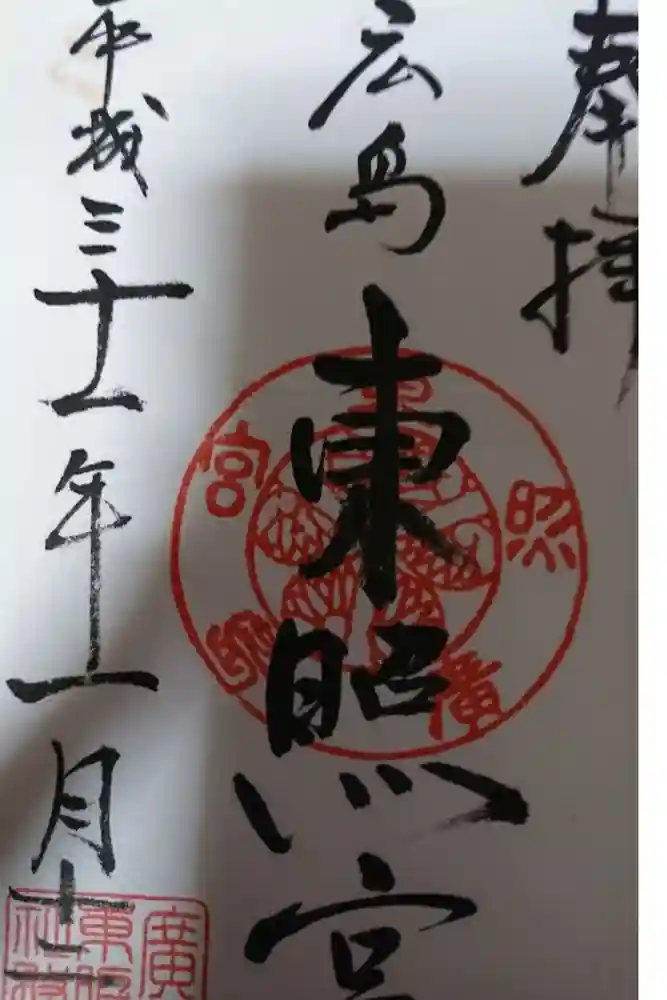 奉拝
広島東照宮
平成三十一年一月十二
廣島東照宮
廣
東照
社務